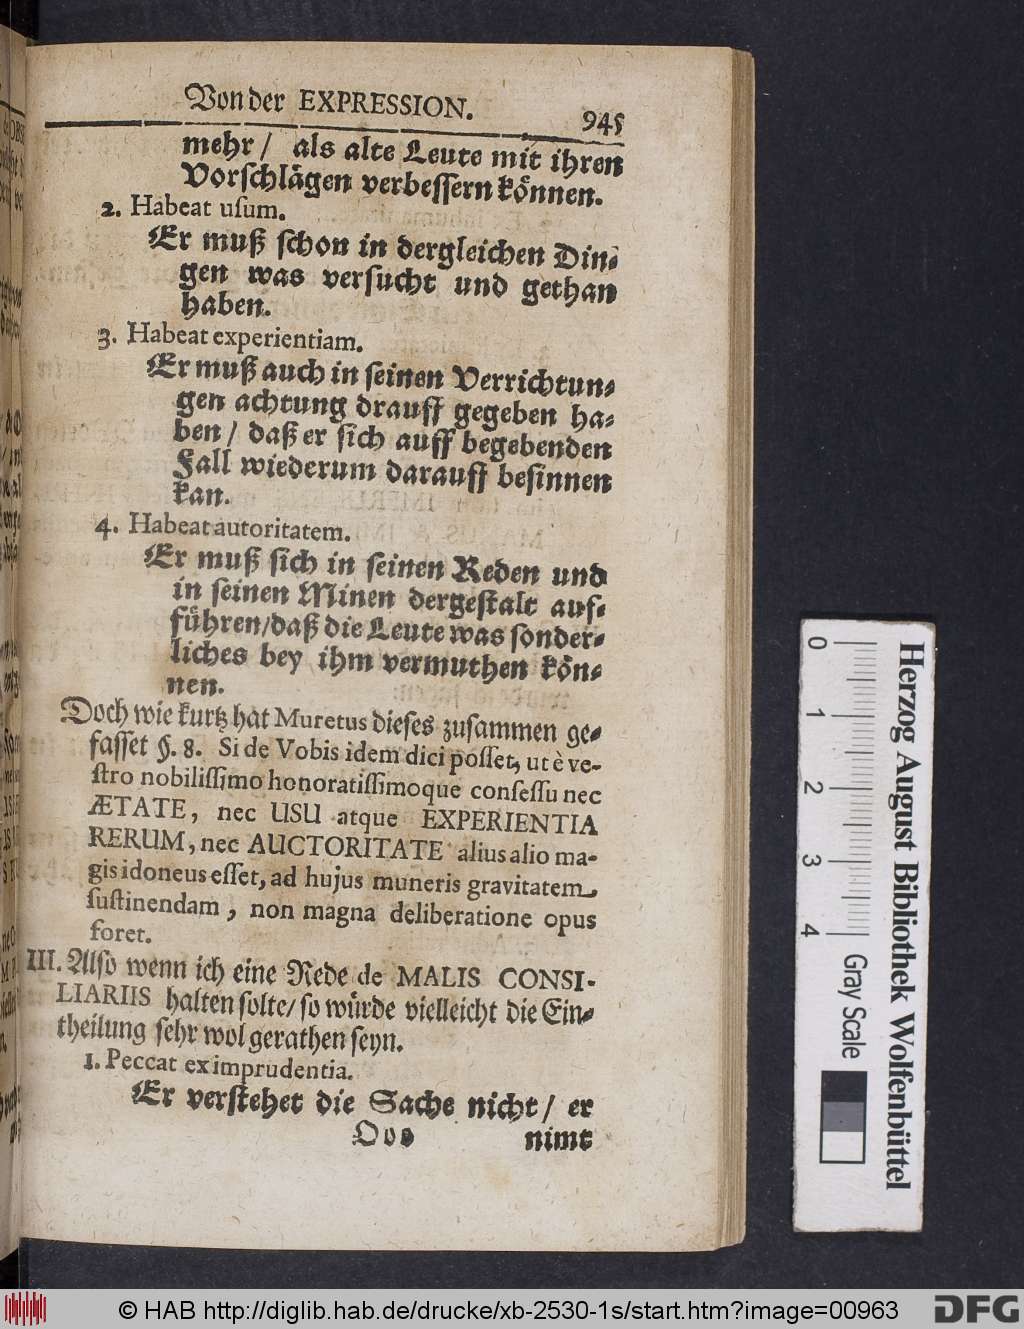 Von der EXPRESSION. 945
mehr / als alte Leute mit ihren
Vorschlägen verbessern können.
2. Habeat usum.
Er muß schon in dergleichen Din-
gen was versucht und gethan
haben.
3. Habeat experientiam.
Er muß auch in seinen Verrichtun-
gen achtung drauff gegeben ha-
ben / daß er sich auff begebenden
Fall wiederum darauff besinnen
kan.
4. Habeat autoritatem.
Er muß sich in seinen Reden und
in seinen Minen dergestalt auf-
führen/daß die Leute was sonder-
liches bey ihm vermuthen kön-
nen.
Doch wie kurtz hat Muretus dieses zusammen ge-
fasset §. 8. Si de Vobis idem dici posset, ut è ve-
stro nobilissimo honoratissimoque consessu nec
ÆTATE, nec USU atque EXPERIENTIA
RERUM, nec AUCTORITATE alius alio ma-
gis idoneus esset, ad hujus muneris gravitatem
sustinendam, non magna deliberatione opus
foret.
III. Also wenn ich eine Rede de MALIS CONSI-
LIARIIS halten solte/ so würde vielleicht die Ein-
theilung sehr wol gerathen seyn.
1. Peccat ex imprudentia.
Er verstehet die Sache nicht / er
Ooo nimt
0 1 2 3 4
Gray Scale
Herzog August Bibliothek Wolfenbüttel
© HAB http://diglib.hab.de/drucke/xb-2530-1s/start.htm?image=00963
DFG